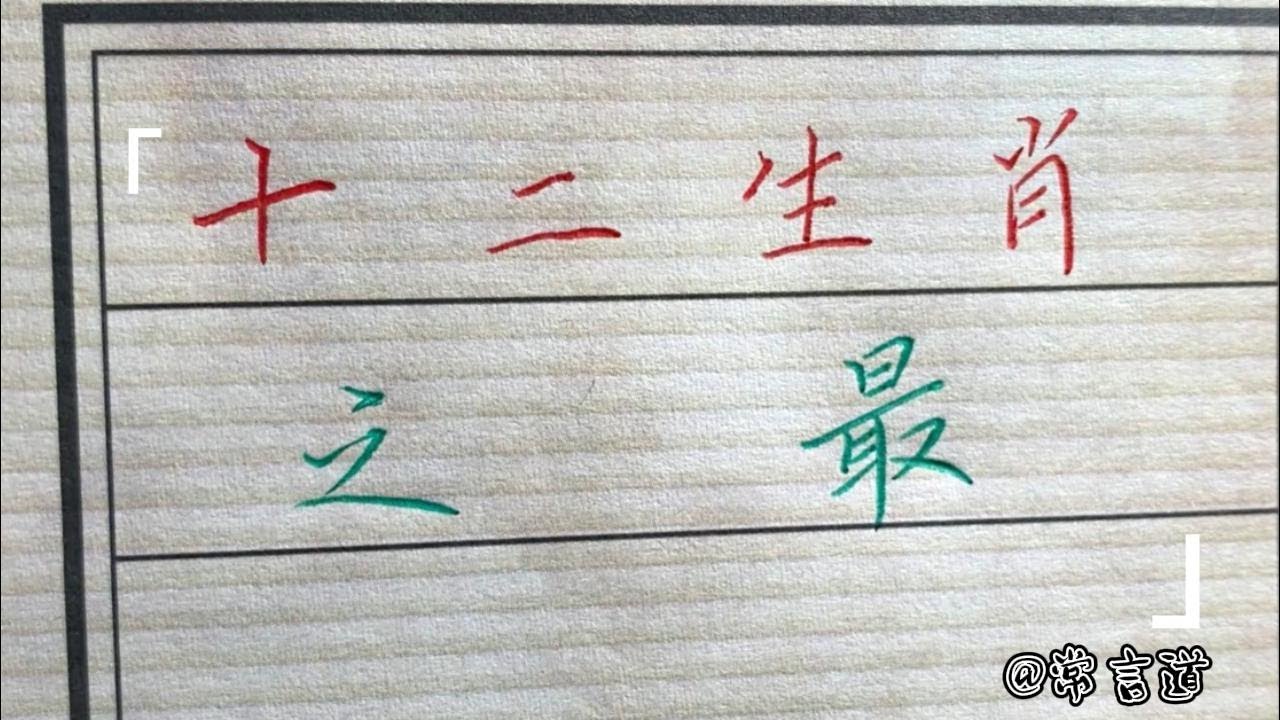 「十二生肖
之最」
@常言道